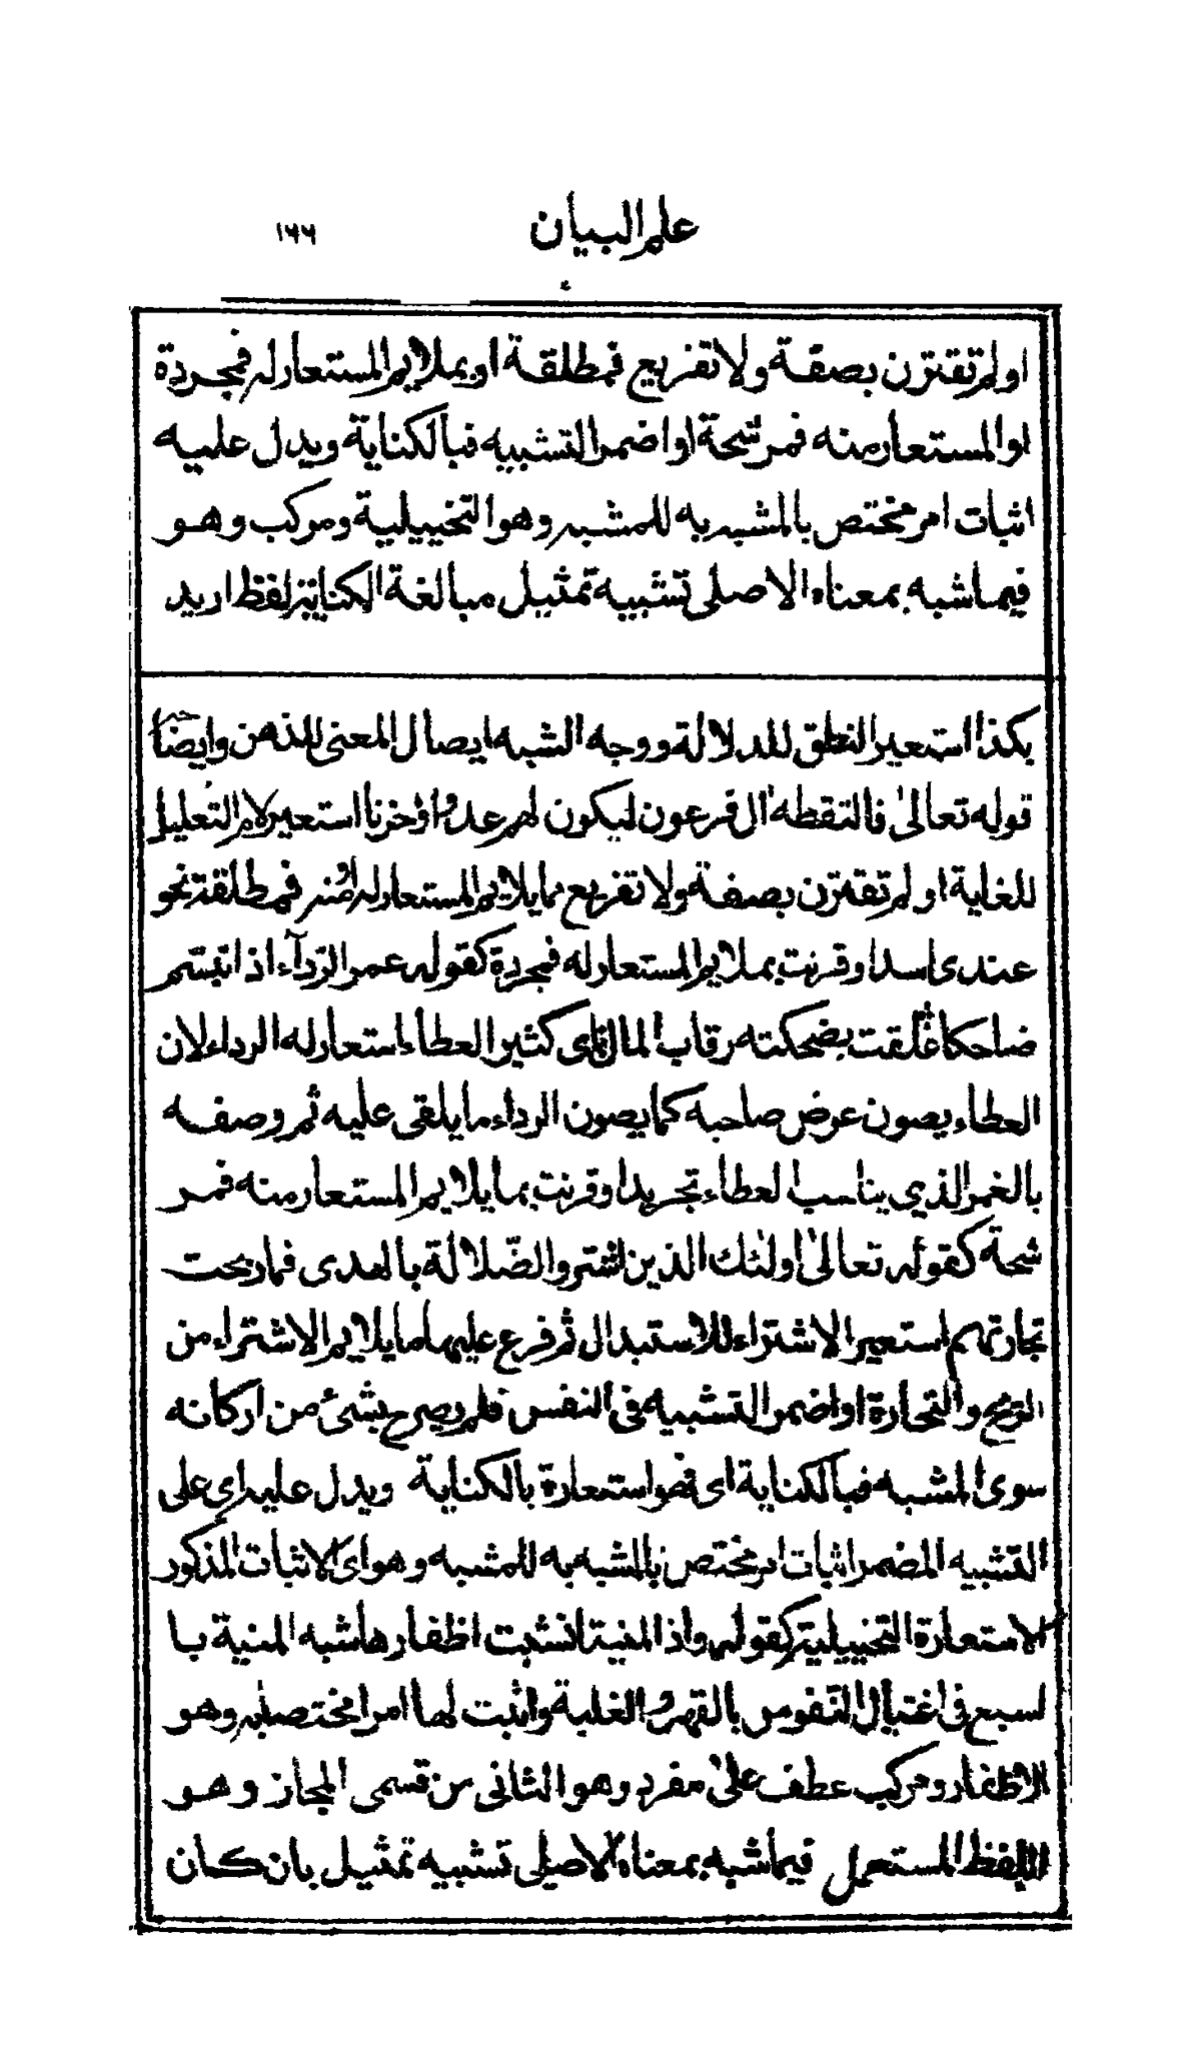 علم البيان ١٦٦
او لم تقترن بصفة ولا تفريع فمطلقة او بملايم المستعار له فمجردة
او المستعار منه فمرشحة او اضمر التشبيه فبالكناية ويدل عليه
اثبات امر مختص بالمشبه به للمشبه وهو التخييلية ومركب وهو
فيما شبه بمعناه الاصلى تشبيه تمثيل مبالغة الكناية لفظ اريد
بكذا استعير النطق للدلالة ووجه الشبه ايصال المعنى للذهن وايضا
قوله تعالى فالتقطه ال فرعون ليكون لهم عدوا وحزنا استعير لام التعليل
للغاية او لم تقترن بصفة ولا تفريع مما يلايم المستعار له او منه فمطلقة نحو
عندى اسد او قرنت بملايم المستعار له فمجردة كقوله غمر الردآء اذا تبسم
ضاحكا غلقت بضحكته رقاب المال اى كثير العطاء استعار له الرداء لان
العطاء يصون عرض صاحبه كما يصون الرداء ما يلقى عليه ثم وصفه
بالغمر الذى يناسب العطاء تجريدا او قرنت بما يلايم المستعار منه فمر
شحة كقوله تعالى اولئك الذين اشتروا الضّلالة بالهدى فما ربحت
تجارتهم استعير الاشتراء للاستبدال ثم فرع عليها ما يلايم الاشتراء من
الربح والتجارة او اضمر التشبيه فى النفس فلم يصرح بشئ من اركانه
سوى المشبه فبالكناية اى فهو استعارة بالكناية ويدل عليه اى على
التشبيه المضمر اثبات امر مختص بالمشبه به للمشبه وهو اى الاثبات المذكور
الاستعارة التخييلية كقوله واذا المنية انشبت اظفارها شبه المنية با
لسبع فى اغتيال النفوس بالقهر والغلبة واثبت لها امرا مختصا به وهو
الاظفار ومركب عطف على مفرد وهو الثانى من قسمى المجاز وهو
اللفظ المستعمل فيما شبه بمعناه الاصلى تشبيه تمثيل بان كان